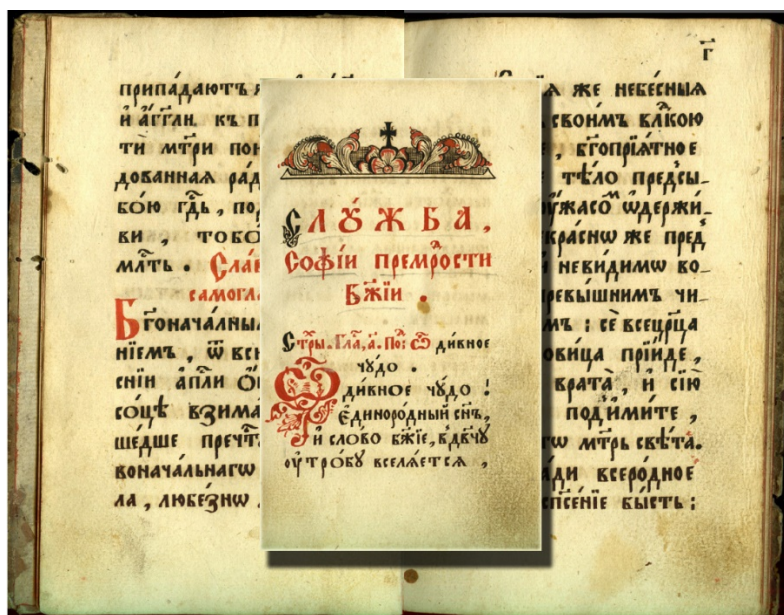 припа́даютъ
и҆ а҆́гг҃ли къ
ти мт҃ри
дованная
бо́ю гдⷭ҇ь,
ви , тобо́
мл҃ть .
самогла
Бг҃онача́лны
нїемъ , ѿ вс
снїи а҆пⷭ҇ли
со́нцѣ взима
ше́дше преч
воначальнагѡ
ла , любе́знѡ
СЛꙊ́ЖБА ,
Софі́и премⷣрости
Бж҃їи .
Стⷯры . Гла́, а҃. Поⷣ: Ѽ ди́вное
чꙋ́до .
Ѽ ди́вное чꙋ́до !
Е҆диноро́дный сн҃ъ,
и҆ сло́во бж҃їе, в̾ дв҃чꙋ
ᲂу҆тро́бꙋ вселѧ́етсѧ ,
г҃
же небе́сныѧ
свои́мъ влⷣкою
, бг҃опрїѧ́тное
тѣ́ло предсы-
ᲂу҆́жасоⷨ ѡ҆держи-
кра́снѡ же пред
неви́димѡ во-
превы́шнимъ чи-
: сѐ всецр҃ца
прїи́де ,
врата̀ , и҆ сїю
поди́мите ,
мт҃рь свѣ́та.
всеро́дное
сп҃се́нїе бы́сть :